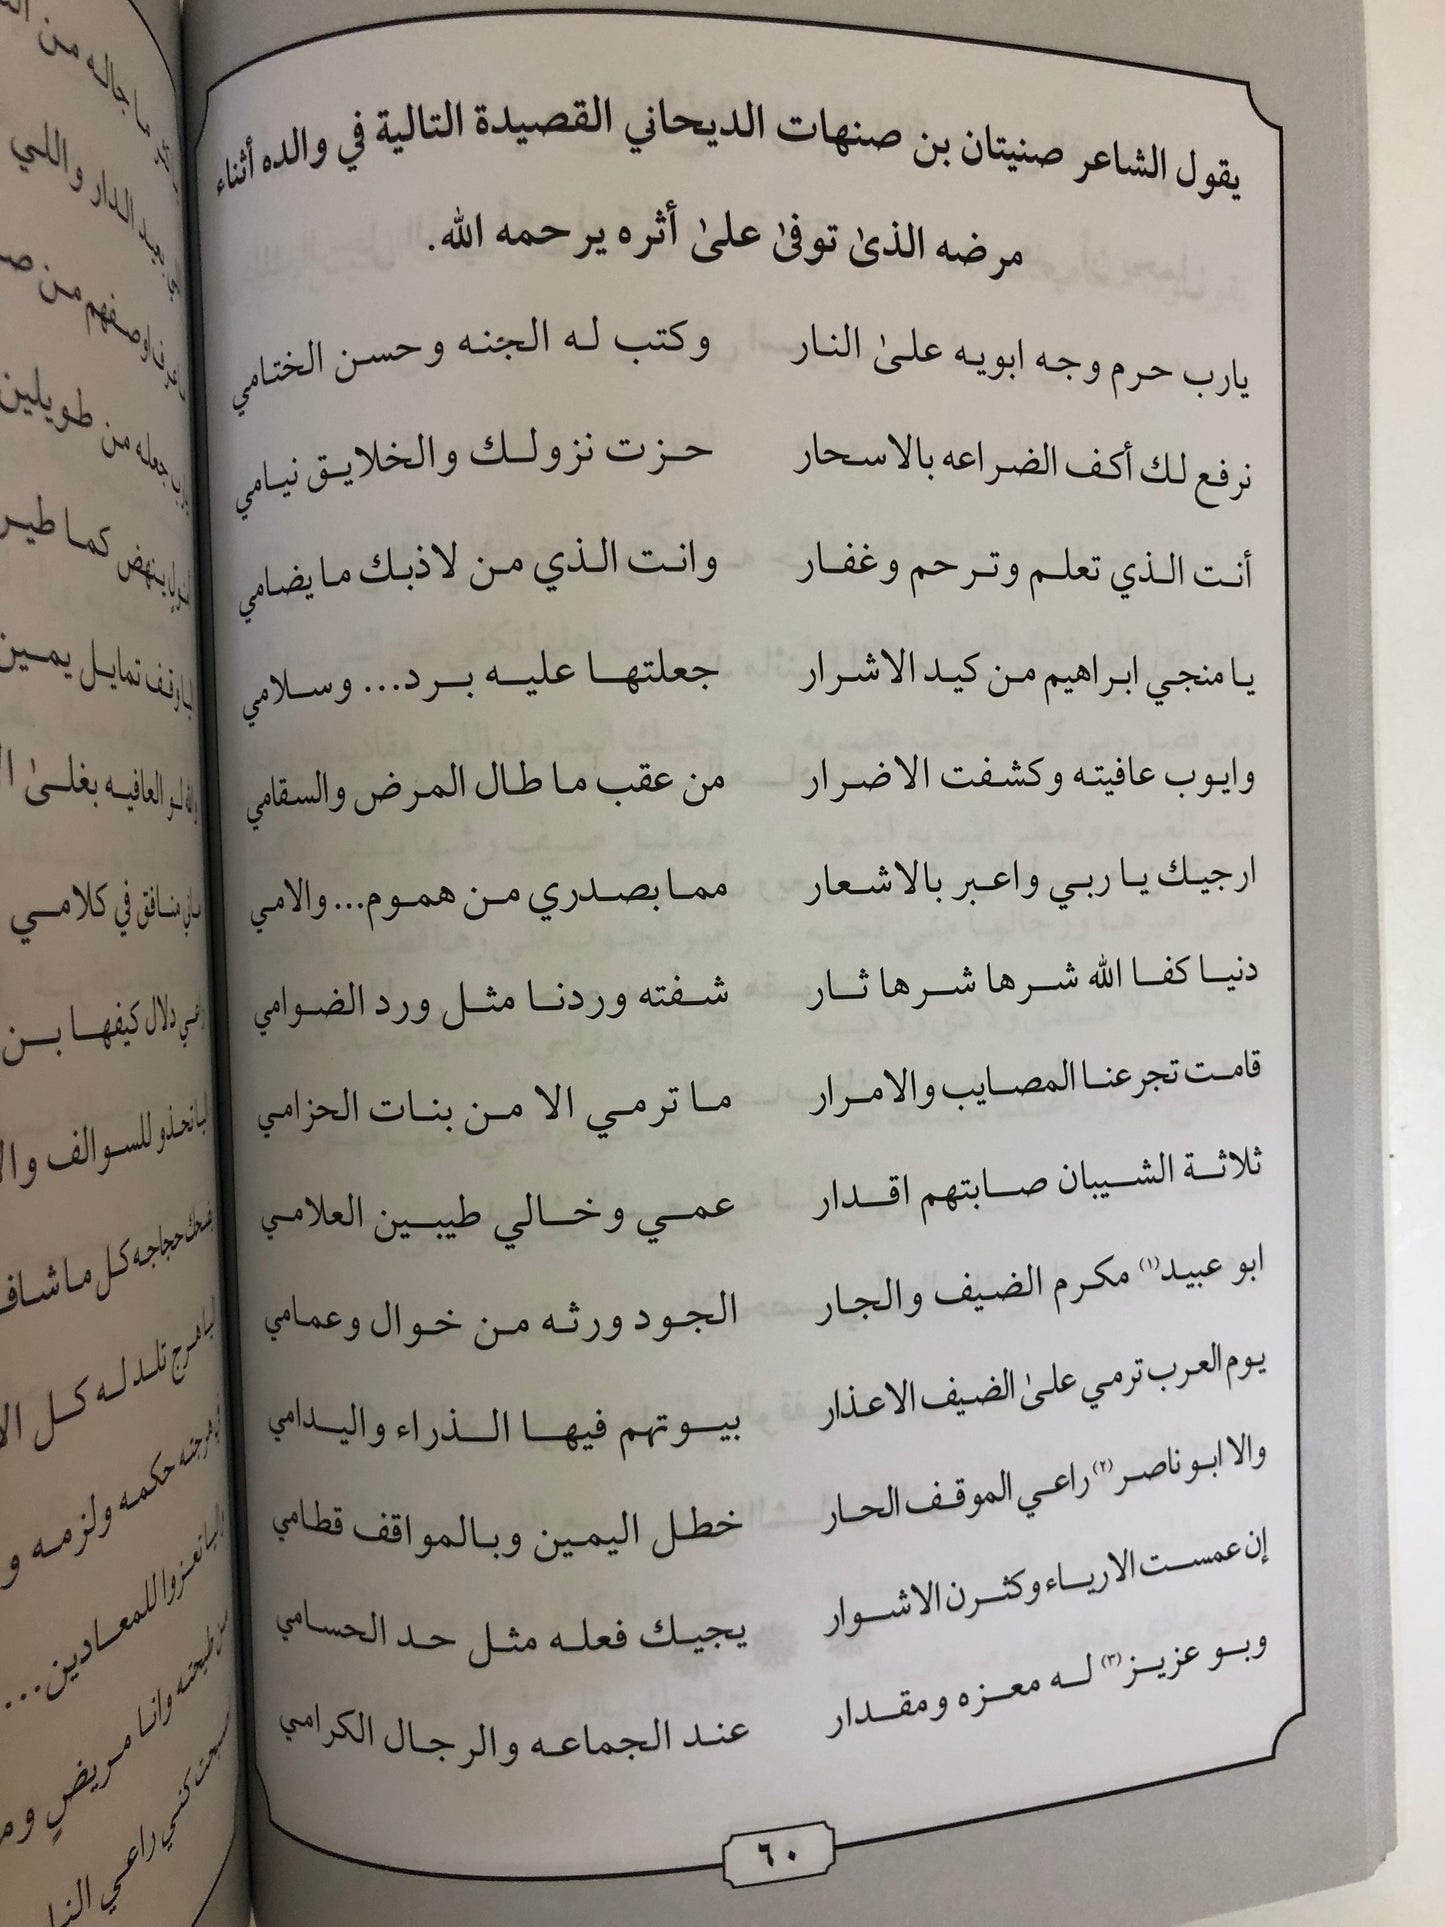 يقول الشاعر صنيتان بن صنهات الديحاني القصيدة التالية في والده أثناء
مرضه الذىٰ توفىٰ علىٰ أثره يرحمه الله.
يارب حرم وجه ابويه علىٰ النار وكتب له الجنه وحسن الختامي
نرفع لك أكف الضراعه بالاسحار حزت نزولك والخلايق نيامي
أنت الذي تعلم وترحم وغفار وانت الذي من لاذبك مايضامي
يامنجي ابراهيم من كيد الاشرار جعلتها عليه برد... وسلامي
وايوب عافيته وكشفت الاضرار من عقب ماطال المرض والسقامي
ارجيك ياربي واعبر بالاشعار ممابصدري من هموم... والامي
دنيا كفا الله شرها شرها ثار شفته وردنا مثل ورد الضوامي
قامت تجرعنا المصايب والامرار ماترمي الا من بنات الحزامي
ثلاثة الشيبان صابتهم اقدار عمي وخالي طيبين العلامي
ابو عبيد(١) مكرم الضيف والجار الجود ورثه من خوال وعمامي
يوم العرب ترمي علىٰ الضيف الاعذار بيوتهم فيها الذراء واليدامي
والا ابو ناصر(٢) راعي الموقف الحار خطل اليمين وبالمواقف قطامي
إن عمست الارياء وكثرن الاشوار يجيك فعله مثل حد الحسامي
وبو عزيز(٣) له معزه ومقدار عند الجماعه والرجال الكرامي
٦٠
ماجاله من
الدار واللي
اوصفهم من
جعله من طويلين
ينهض كما طير
تمايل يمين
العافيه بغلىٰ
منافق في كلامي
دلال كيفها بن
للسوالف
حجاجه كل ماشاف
هرج تلدله كل
حكمه ولزمه و
للمعادين...
طيحته وانا مريضٍ
كني راعي